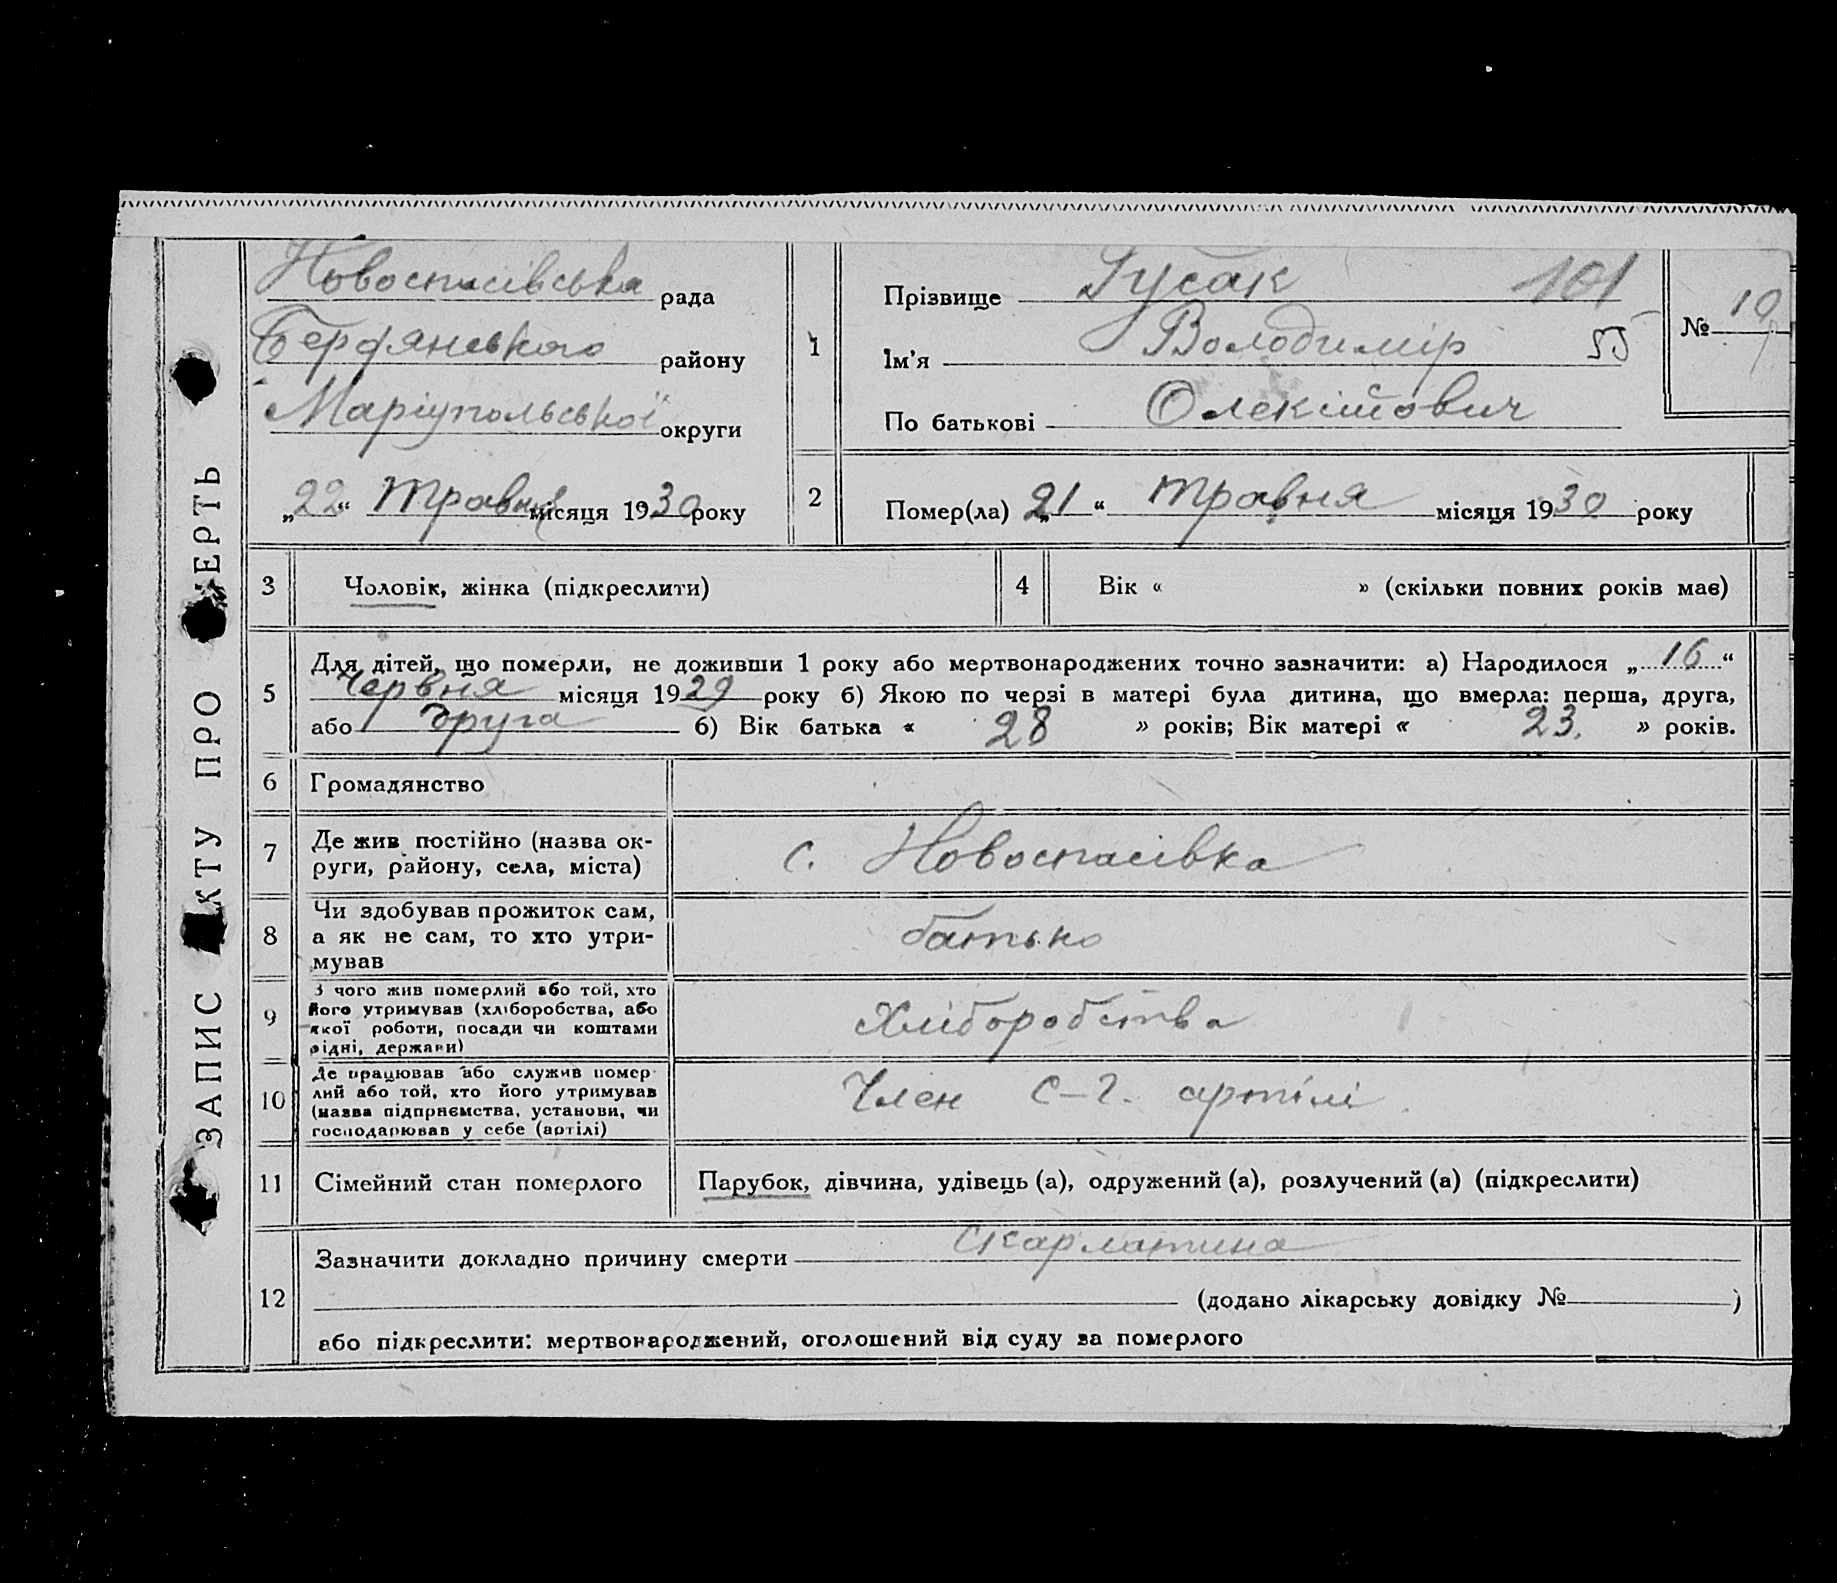 ЗАПИС АКТУ ПРО СМЕРТЬ
Новоспасівська рада
Бердянського району
Маріупольської округи
„22“ Травня місяця 1930 року
1
Прізвище Гусак 101
Ім'я Володимір 55
По батькові
№ 19
2
Помер(ла) „21“ травня місяця 1930 року
3 Чоловік, жінка (підкреслити)
4 Вік « » (скільки повних років має)
5
Для дітей, що померли, не доживши 1 року або мертвонароджених точно зазначити: а) Народилося „16“
Червня місяця 1929 року б) Якою по черзі в матері була дитина, що вмерла: перша, друга,
або друга б) Вік батька « 28 » років; Вік матері « 23. » років.
6 Громадянство
7 Де жив постійно (назва ок-
руги, району, села, міста)
с. Новоспасівка
8 Чи здобував прожиток сам,
а як не сам, то хто утри-
мував
батько
9 З чого жив померлий або той, хто
його утримував (хліборобства, або
якої роботи, посади чи коштами
рідні, держави)
Хліборобства
10 Де працював або служив помер-
лий або той, хто його утримував
(назва підприємства, установи, чи
господарював у себе (артілі)
Член С-г. артілі
11 Сімейний стан померлого
Парубок, дівчина, удівець (а), одружений (а), розлучений (а) (підкреслити)
12
Зазначити докладно причину смерти Скарлатина
(додано лікарську довідку № )
або підкреслити: мертвонароджений, оголошений від суду за померлого